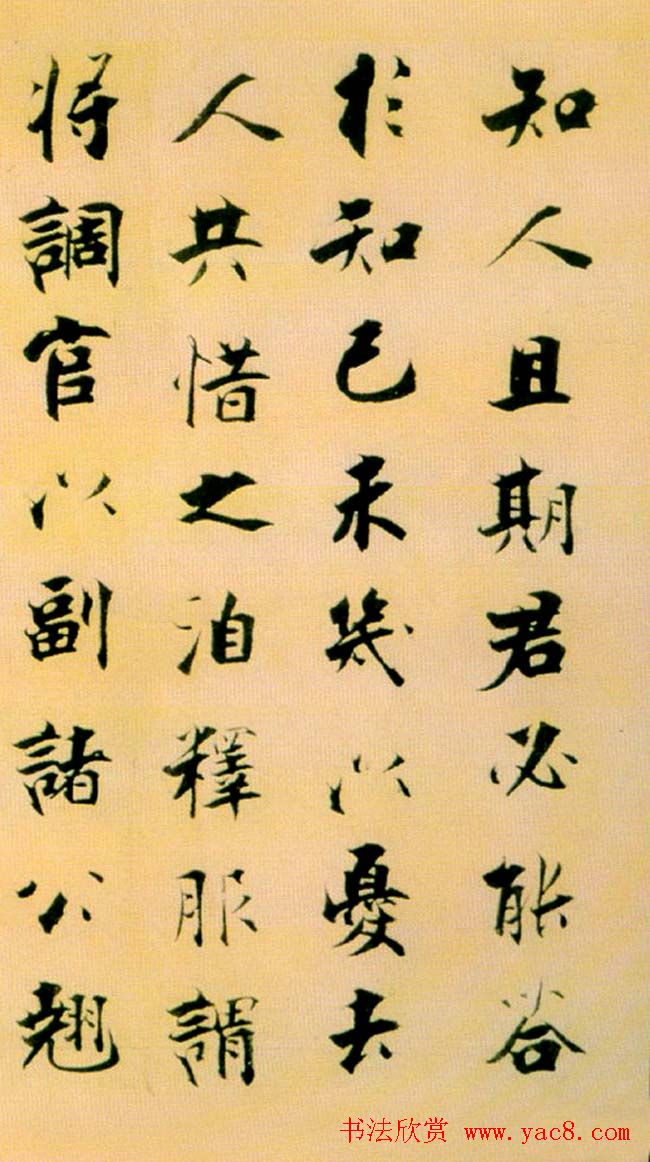 知人且期君必能答
於知己未幾以憂去
人共惜之洎釋服謂
將調官以副諸公翹
书法欣赏 www.yac8.com